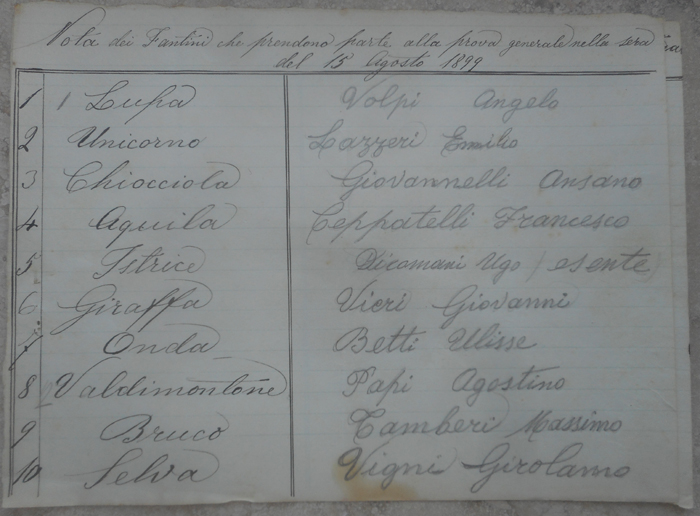 Nota dei Fantini che prendono parte alla prova generale nella sera
del 15 Agosto 1899
1 1 Lupa Volpi Angelo
2 Unicorno Lazzeri Emilio
3 Chiocciola Giovannelli Ansano
4 Aquila Ceppatelli Francesco
5 Istrice Dicomani Ugo (esente)
6 Giraffa Vieri Giovanni
7 Onda Betti Ulisse
8 Valdimontone Papi Agostino
9 Bruco Tamberi Massimo
10 Selva Vigni Girolamo